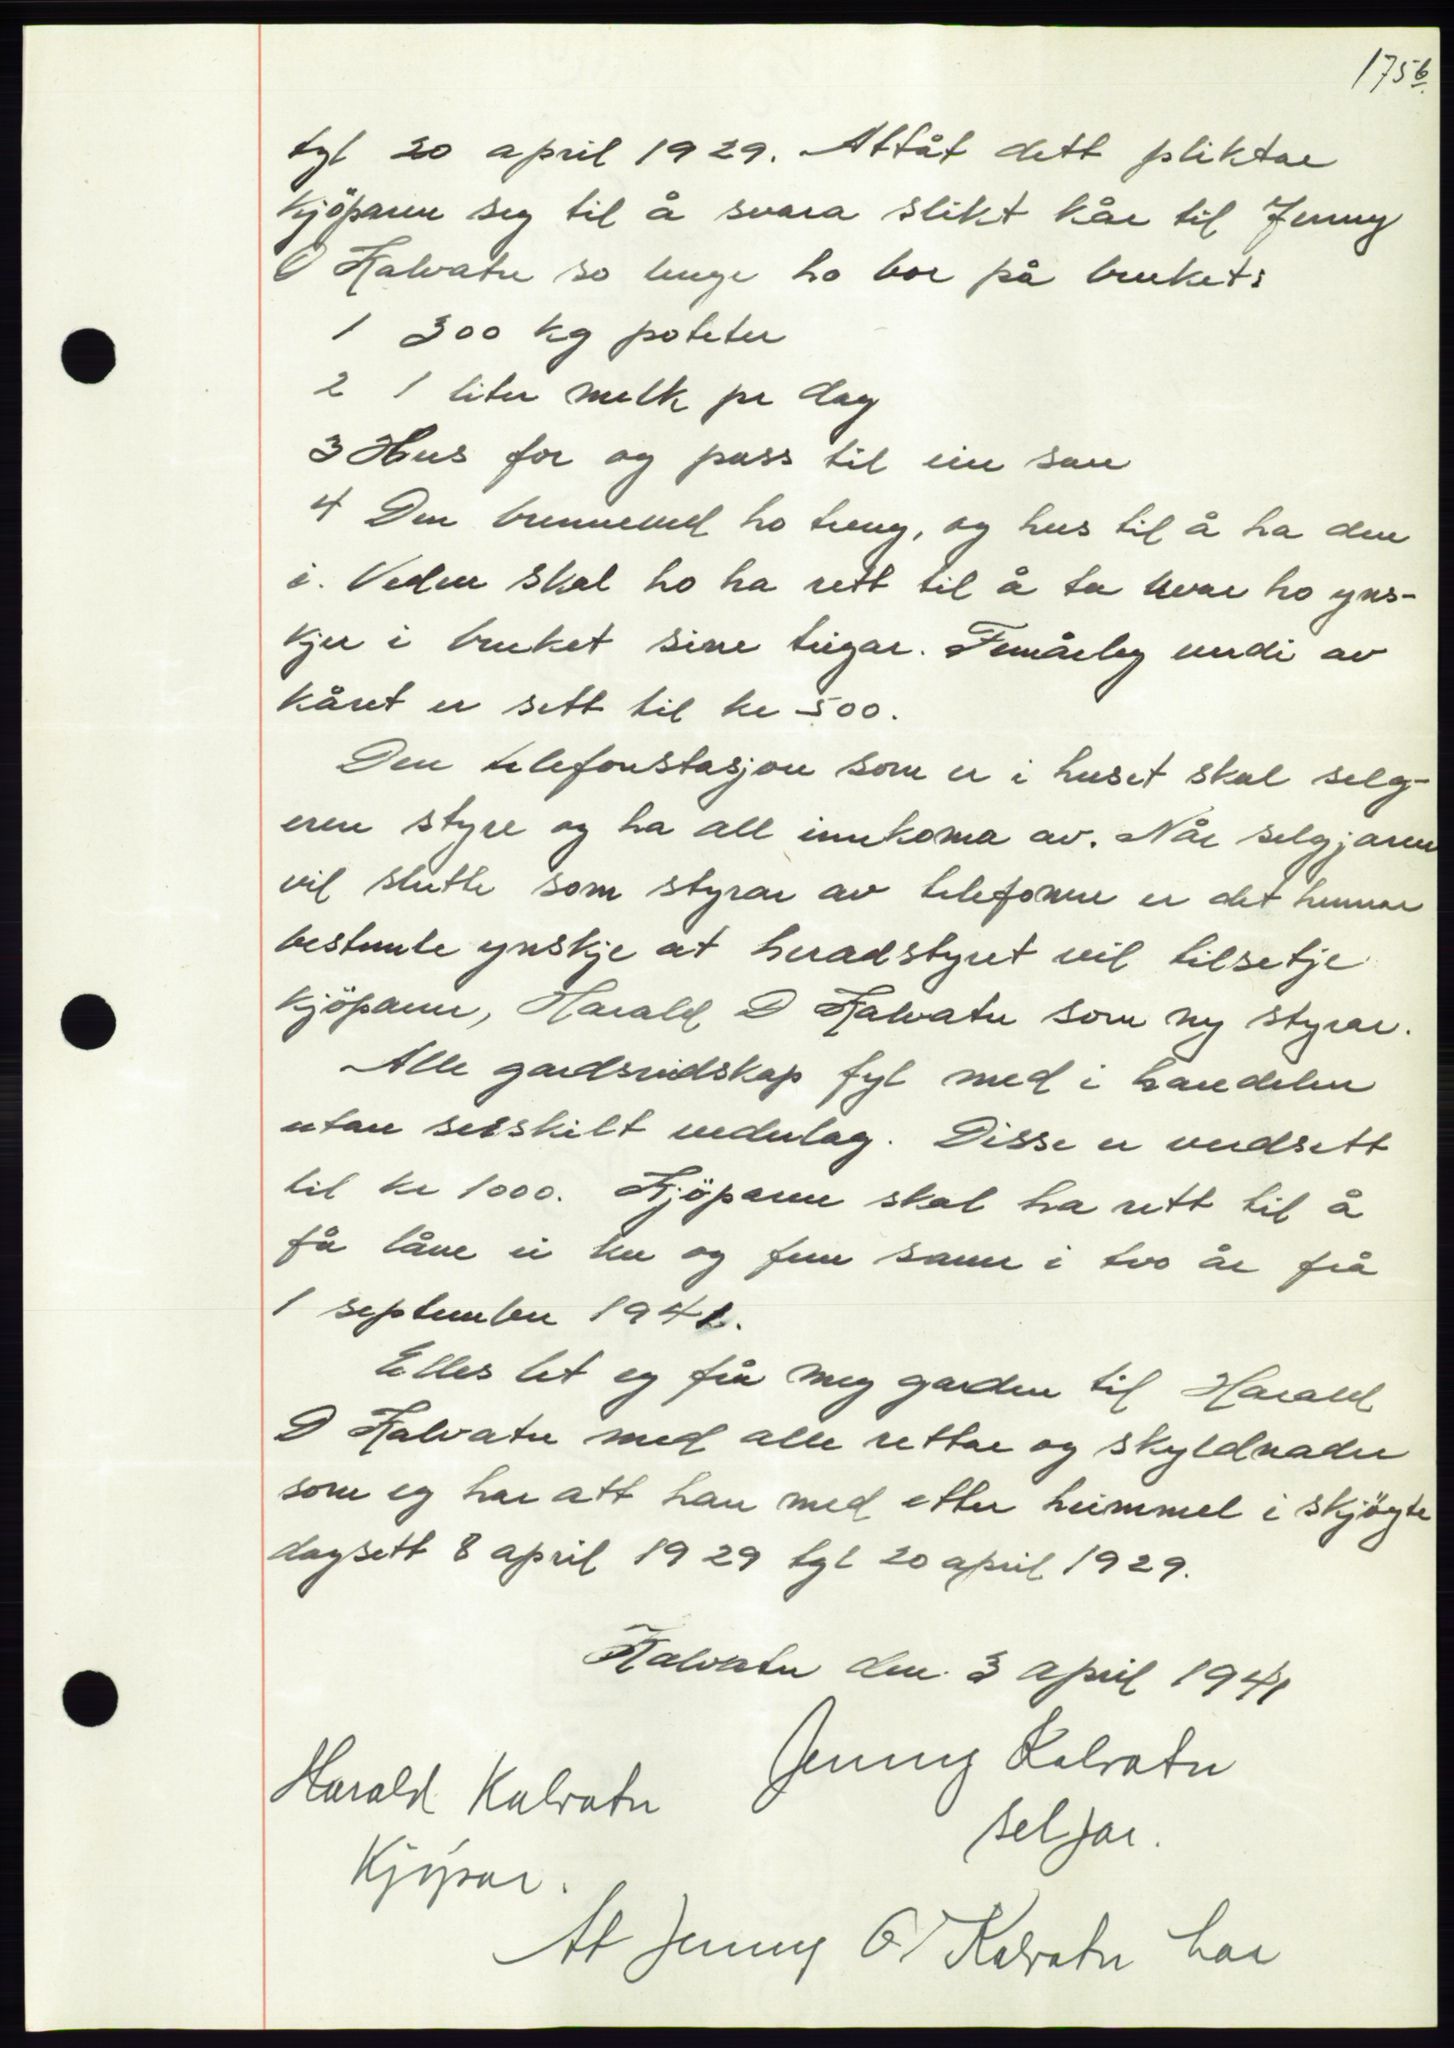 175b.
tgl 20 april 1929. Attåt dett pliktar
kjöparen seg til å svara slikt kår til Jenny
O Kalvatn so lenge ho bor på bruket:
1 300 kg poteter
2 1 liter melk pr dag
3 Hus for og pass til ein sau
4 Den brenneved ho treng, og hus til å ha den
i. Veden skal ho ha rett til å ta kvar ho yns-
kjer i bruket sine teigar. Femårleg verdi av
kåret er sett til kr 500.
Den telefonstasjon som er i huset skal selg-
eren styre og ha all innkoma av. Når selgjaren
vil slutte som styrar av telefonen er det hennar
bestemte ynskje at heradstyret vil tilsetje
kjöparen, Harald D Kalvatn som ny styrar.
Alle gardsreidskap fyl med i handelen
utan serskilt vederlag. Disse er verdsett
til kr 1000. Kjöparen skal ha rett til å
få låne ei ku og fem sauer i tvo år frå
1 september 1941.
Elles let eg frå meg garden til Harald
D Kalvatn med alle rettar og skyldnader
som eg har att han med etter heimmel i skjöyte
dagsett 8 april 1929 tgl 20 april 1929.
Kalvatn den 3 april 1941
Jenny Kalvatn
seljar.
Harald Kalvatn
Kjöpar.
At Jenny O Kalvatn har